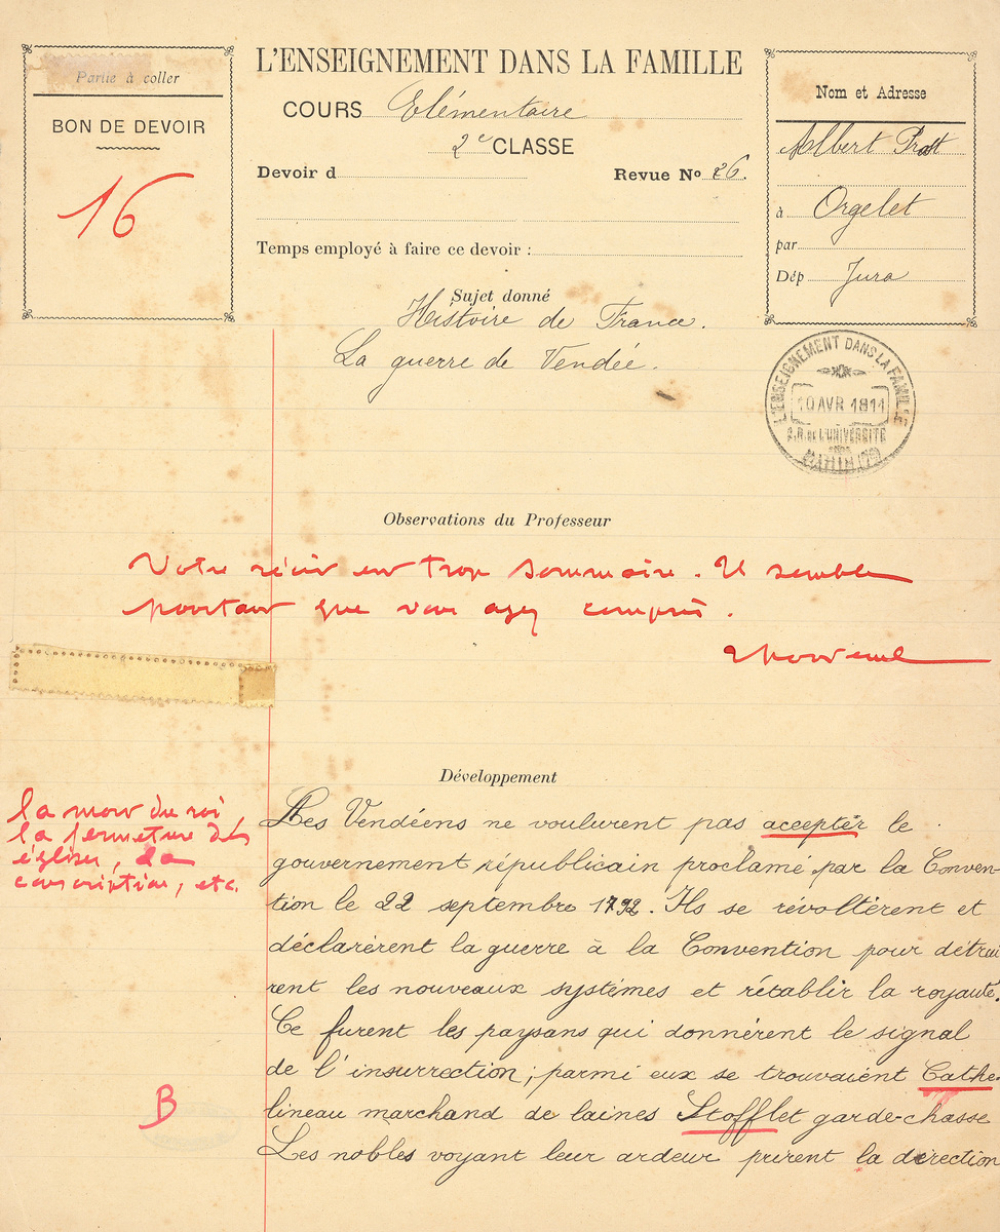 Partie à coller
BON DE DEVOIR
16
L'ENSEIGNEMENT DANS LA FAMILLE
COURS Elémentaire
2e CLASSE
Devoir d
Revue No 26.
Temps employé à faire ce devoir :
Nom et Adresse
Albert Prost
à Orgelet
par
Dép Jura
Sujet donné
Histoire de France.
La guerre de Vendée.
L'ENSEIGNEMENT DANS LA FAMILLE
10 AVR 1911
DE L'UNIVERSITÉ
Observations du Professeur
Votre récit est trop sommaire. Il semble
pourtant que vous ayez compris.
Développement
la mort du roi
la fermeture des
églises, la
conscription, etc.
B
Les Vendéens ne voulurent pas acceptér le
gouvernement républicain proclamé par la Conven-
tion le 22 septembre 1792. Ils se révoltèrent et
déclarèrent la guerre à la Convention pour détrui
rent les nouveaux systémes et rétablir la royauté.
Ce furent les paysans qui donnèrent le signal
de l'insurrection ; parmi eux se trouvaient Cathe
lineau marchand de laines Stofflet garde-chasse
Les nobles voyant leur ardeur prirent la direction